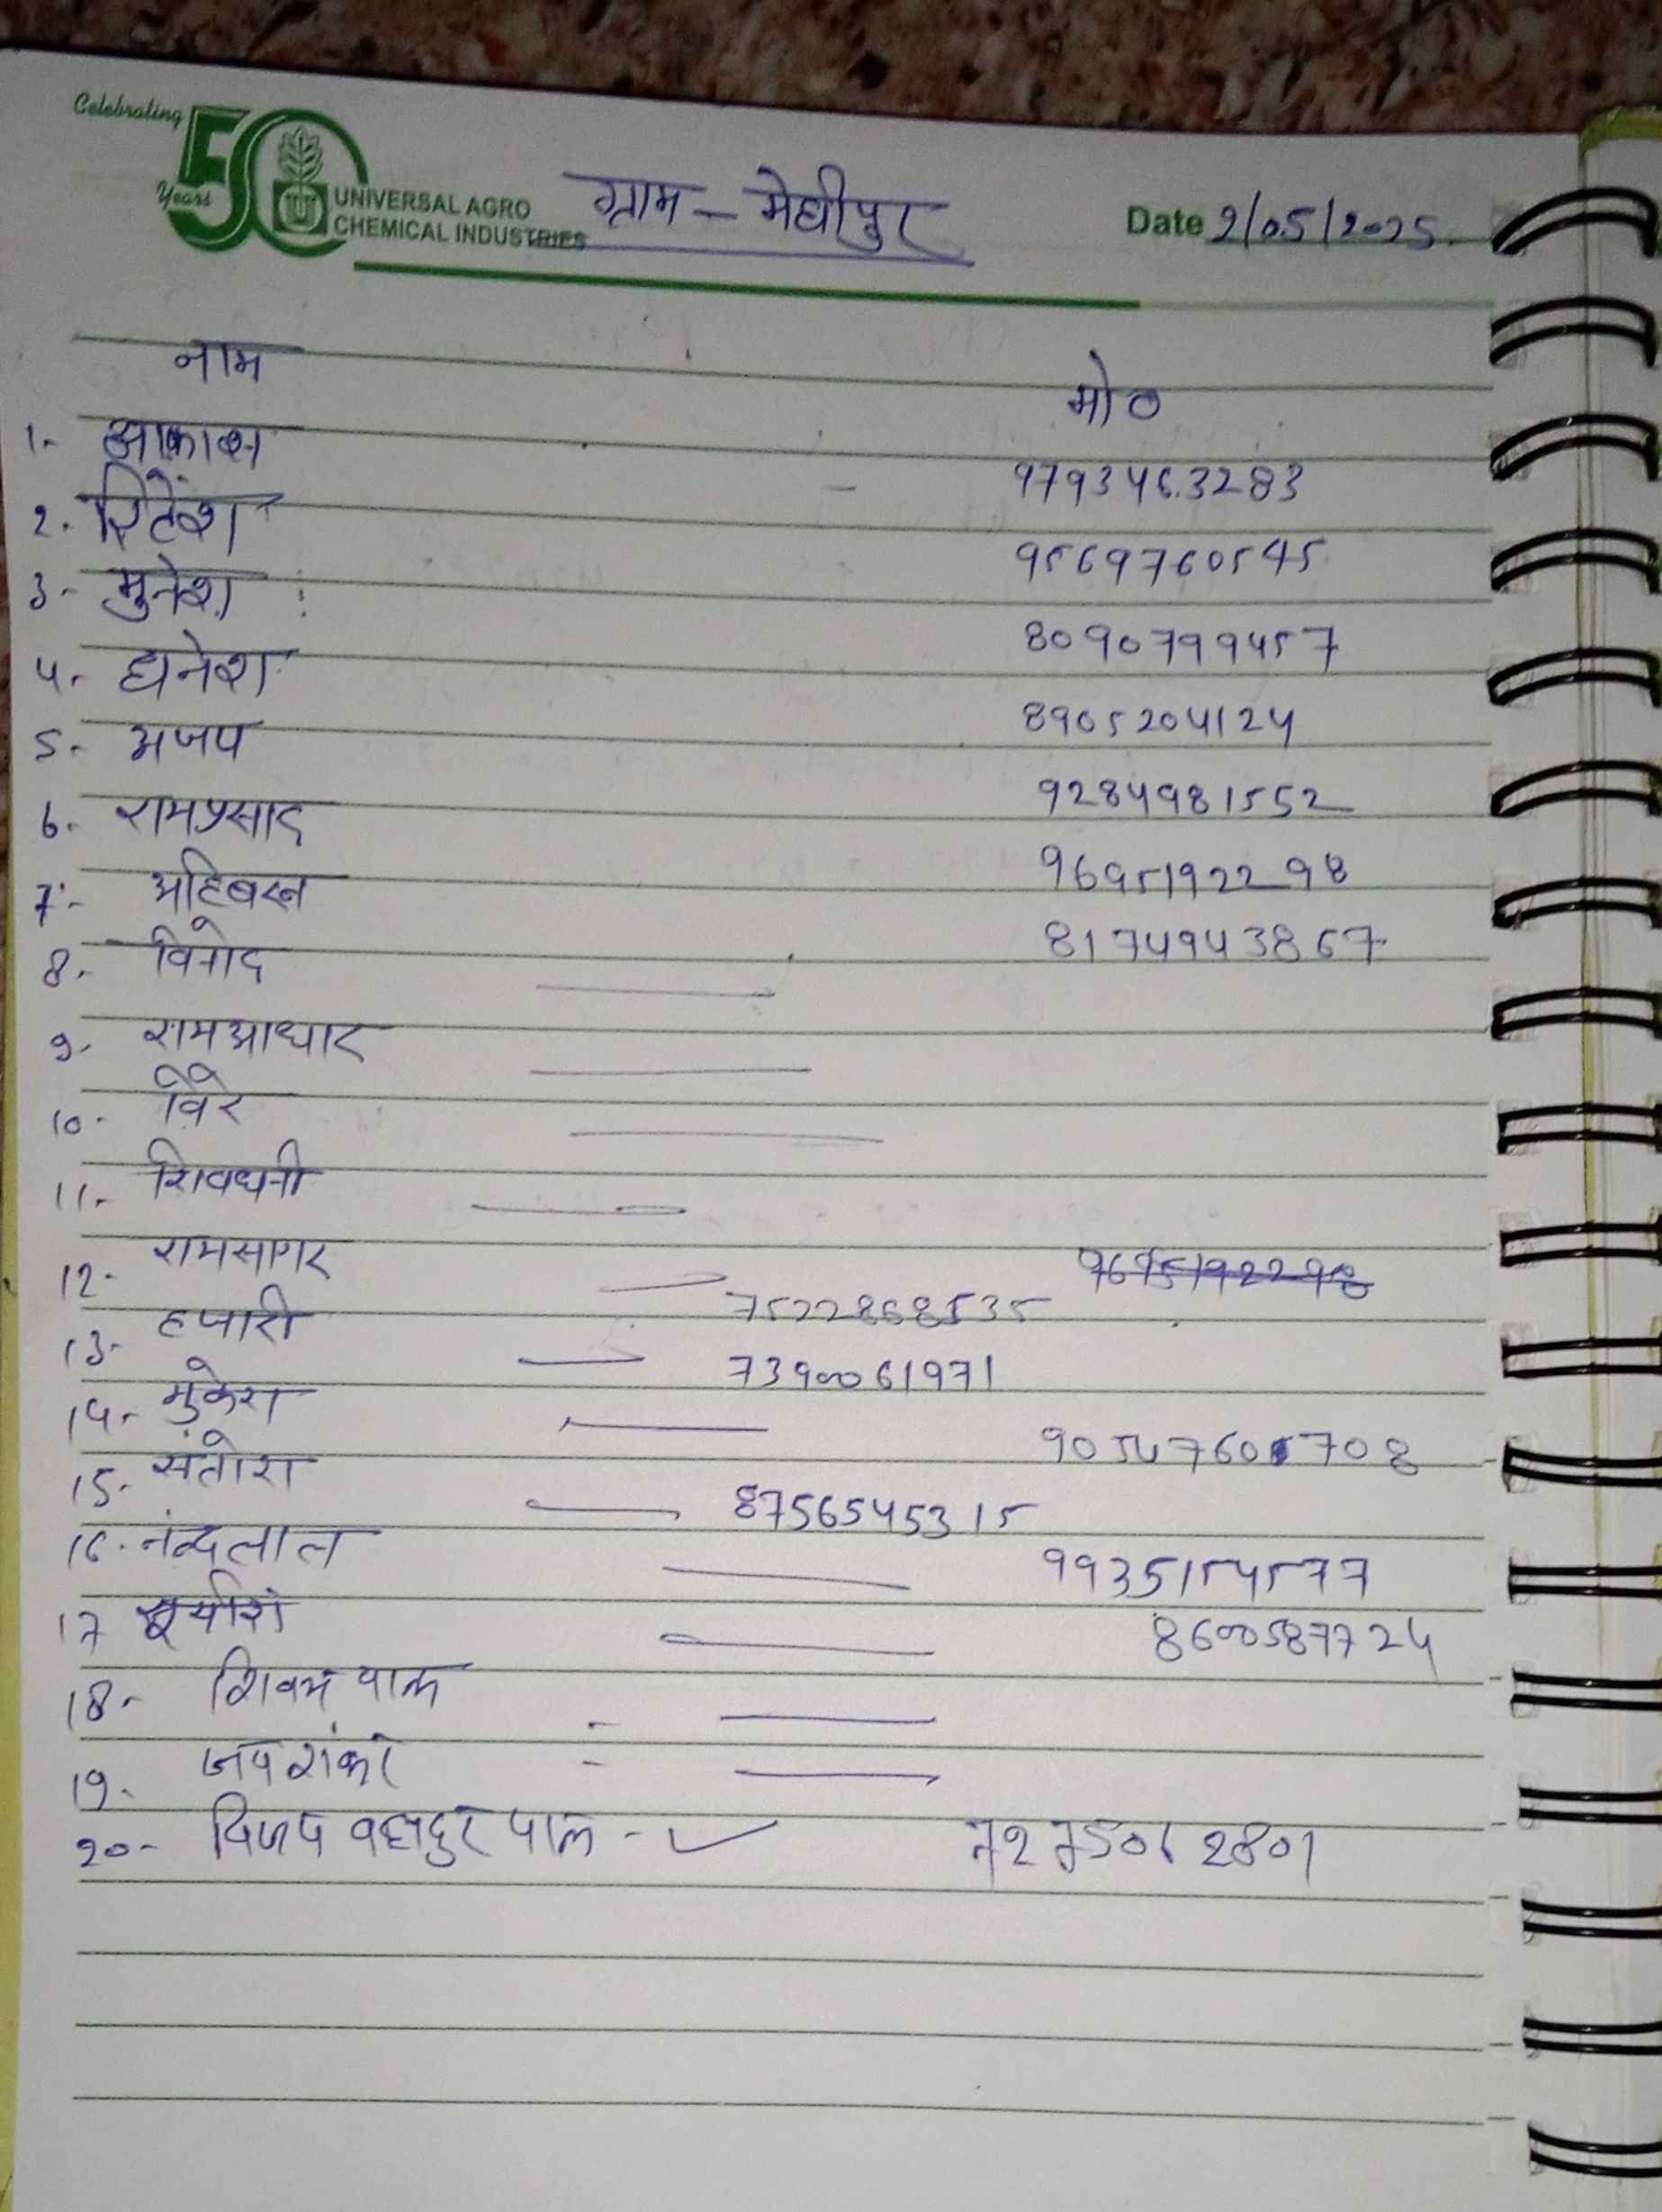 Celebrating
50
Years
UNIVERSAL AGRO
CHEMICAL INDUSTRIES
ग्राम - मेघीपुर
Date 2/05/2025.
नाम मो०
1. आकाश - 9793463283
2. रितेश 9569760545
3- मुनेश 8090799457
4. धनेश 8905204124
5. अजय 9284981552
6. रामप्रसाद 9695192298
7- अहिबरन 8174943867
8. विनोद
9. रामआधार
10.
11. शिवधनी
12. रामसागर 7522868535 9695192298
13. हजारी 7390061971
14. मुकेश 9054760708
15. संतोश 8756545315
16. नंदलाल 9935154577
17 8600587724
18. शिवम पाल
19. जयशंकर
20- विजय बहादुर पाल - 7275062801